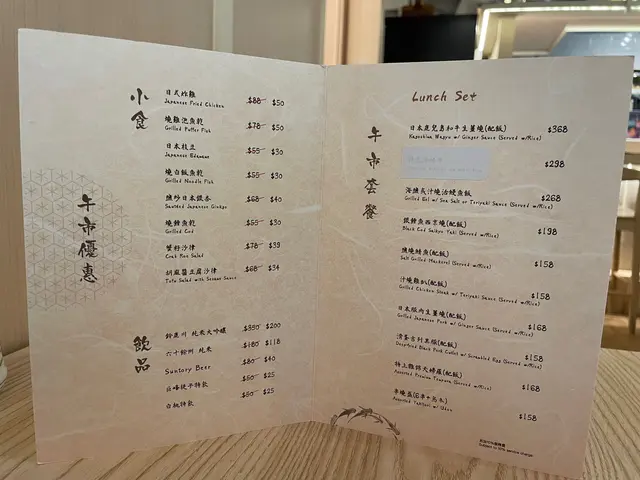 午市優惠
小食
日式炸雞 $88 $50
Japanese Fried Chicken
燒雞泡魚乾 $50
Grilled Puffer Fish
日本枝豆 $30
Japanese Edamame
燒白飯魚乾 $30
Grilled Noodle Fish
$68 $40
Sauteed Japanese Ginkgo
$30
Grilled Cod
蟹籽沙律 $78 $39
Crab Roe Salad
胡麻醬豆腐沙律 $68 $34
Tofu Salad with Sesame Sauce
飲品
純米大吟釀 $200
純米 $180 $118
Suntory Beer $80 $40
$50 $25
$50 $25
Lunch Set
午市套餐
日本鹿兒島和牛生薑燒(配飯) $368
Kagoshima Wagyu w/ Ginger Sauce (Served w/Rice)
$298
$268
Grilled Eel w/ Sea Salt or Teriyaki Sauce (Served w/Rice)
銀鱈魚西京燒(配飯) $198
Black Cod Saikyo Yaki (Served w/Rice)
鹽燒鯖魚(配飯) $158
Salt Grilled Mackerel (Served w/Rice)
汁燒雞扒(配飯) $158
Grilled Chicken Steak w/ Teriyaki Sauce (Served w/Rice)
日本豚肉生薑燒(配飯) $168
Grilled Japanese Pork w/ Ginger Sauce (Served w/Rice)
$158
Deep-fried Black Pork Cutlet w/ Scrambled Egg (Served w/Rice)
特上雜錦天婦羅(配飯) $168
Assorted Premium Tempura (Served w/Rice)
$158
Assorted Yakitori w/ Udon
Subject to 10% service charge